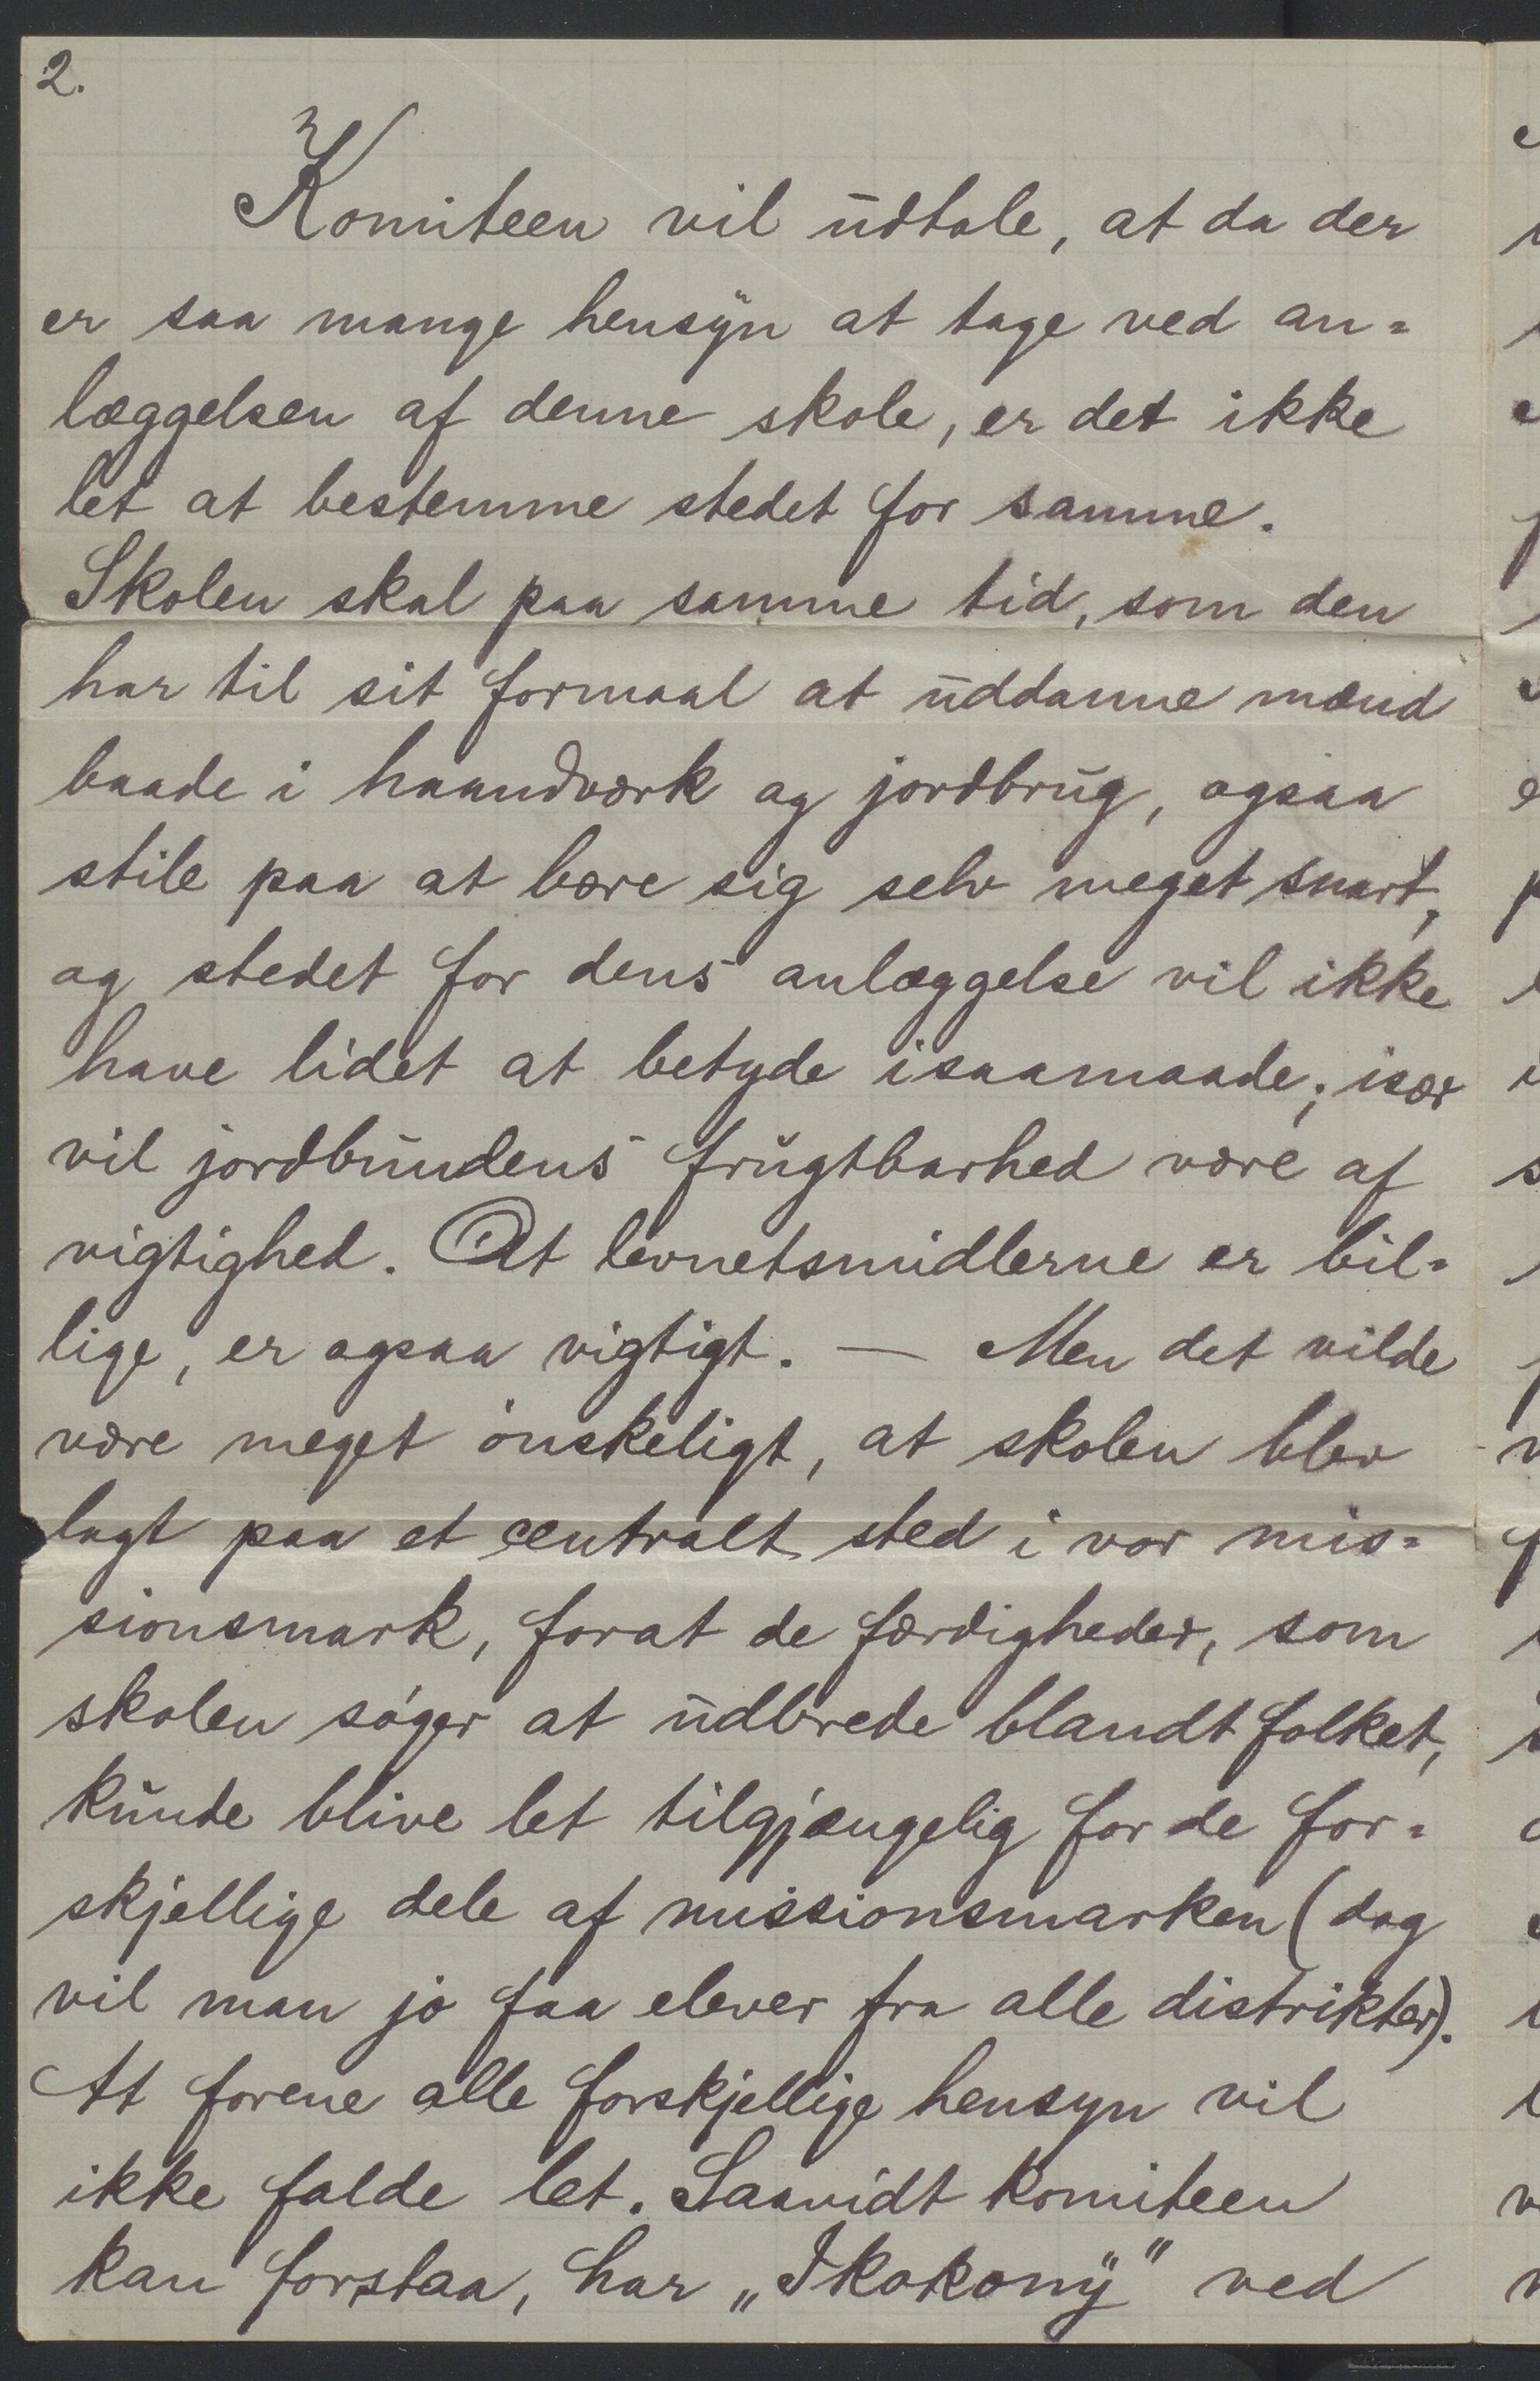 2.
Komiteen vil udtale, at da der
er saa mange hensyn at tage ved an=
læggelsen af denne skole, er det ikke
let at bestemme stedet for samme.
Skolen skal paa samme tid, som den
har til sit formaal at uddanne mænd
baade i haandværk og jordbrug, ogsaa
stile paa at bære sig selv meget snart,
og stedet for dens anlæggelse vil ikke
have lidet at betyde isaamaade; især
vil jordbundens frugtbarhed være af
vigtighed. At levnetsmidlerne er bil=
lige, er ogsaa vigtigt. — Men det vilde
være meget ønskeligt, at skolen blev
lagt paa et centralt sted i vor mis=
sionsmark, forat de færdigheder, som
skolen søger at udbrede blandt folket,
kunde blive let tilgjængelig for de for=
skjellige dele af missionsmarken (dog
vil man jo faa elever fra alle distrikter).
At forene alle forskjellige hensyn vil
ikke falde let. Saavidt komiteen
kan forstaa, har „Ikokony" ved